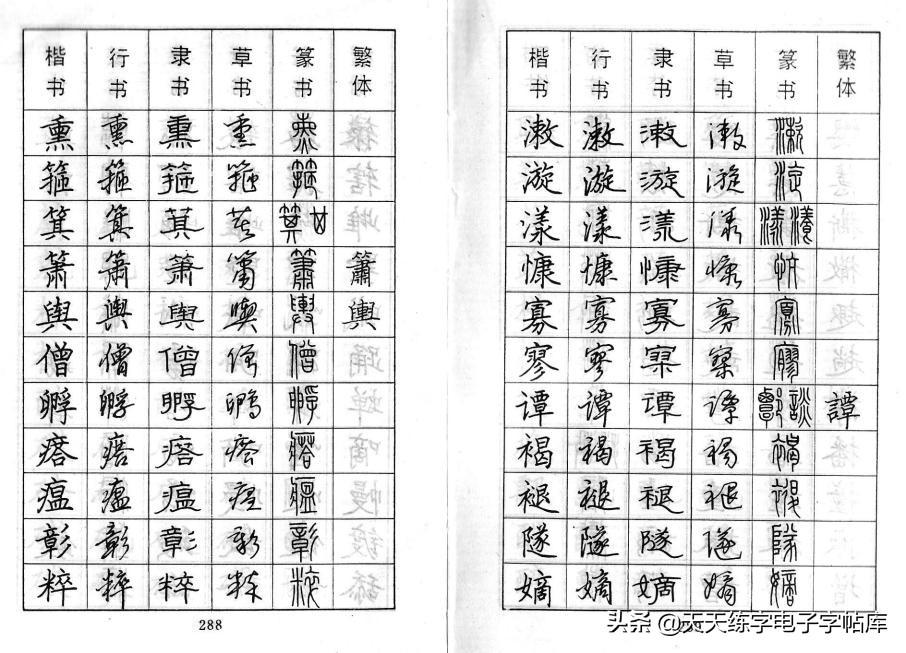 楷书 行书 隶书 草书 篆书 繁体
熏 熏 熏 熏 熏
箍 箍 箍 箍 箍
箕 箕 箕 箕 箕
箫 箫 箫 箫 簫 簫
舆 舆 舆 舆 輿 輿
僧 僧 僧 僧 僧
孵 孵 孵 孵 孵
瘩 瘩 瘩 瘩 瘩
瘟 瘟 瘟 瘟 瘟
彰 彰 彰 彰 彰
粹 粹 粹 粹 粹
288
楷书 行书 隶书 草书 篆书 繁体
漱 漱 漱 漱 漱
漩 漩 漩 漩 漩
漾 漾 漾 漾 漾 瀁
慷 慷 慷 慷 慷
寡 寡 寡 寡 寡
寥 寥 寥 寥 寥
谭 谭 谭 谭 譚
褐 褐 褐 褐 褐
褪 褪 褪 褪 褪
隧 隧 隧 隧 隧
嫡 嫡 嫡 嫡 嫡
头条 @天天练字电子字帖库